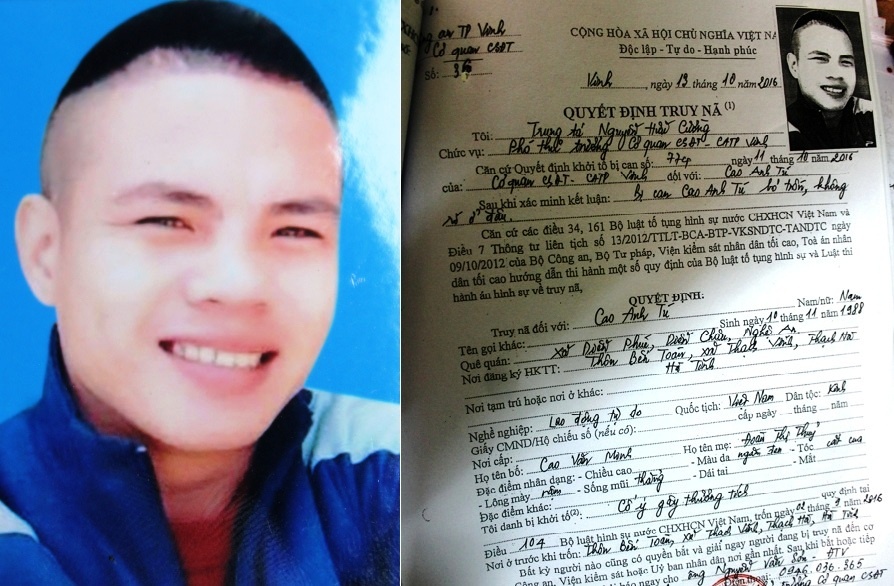 CỘNG HÒA XÃ HỘI CHỦ NGHĨA VIỆT NA
an TP Vinh
Độc lập - Tự do - Hạnh phúc
Cơ quan CSĐT
Số: 36
Vinh, ngày 13 tháng 10 năm 2016
QUYẾT ĐỊNH TRUY NÃ (1)
Tôi: Trung tá Nguyễn Hữu Cường
Chức vụ: Phó thủ trưởng Cơ quan CSĐT - CATP Vinh
Căn cứ Quyết định khởi tố bị can số: ngày 11 tháng 10 năm 2016
của: Cơ quan CSĐT - CATP Vinh đối với: Cao Anh Tú
Sau khi xác minh kết luận: bị can Cao Anh Tú bỏ trốn, không
rõ ở đâu.
Căn cứ các điều 34, 161 Bộ luật tố tụng hình sự nước CHXHCN Việt Nam và
Điều 7 Thông tư liên tịch số 13/2012/TTLT-BCA-BTP-VKSNDTC-TANDTC ngày
09/10/2012 của Bộ Công an, Bộ Tư pháp, Viện kiểm sát nhân dân tối cao, Toà án nhân
dân tối cao hướng dẫn thi hành một số quy định của Bộ luật tố tụng hình sự và Luật thi
hành án hình sự về truy nã,
QUYẾT ĐỊNH:
Truy nã đối với: Cao Anh Tú Nam/nữ: Nam
Tên gọi khác: Sinh ngày 10 tháng 11 năm 1988
Quê quán: xã Diễn Phú, Diễn Châu, Nghệ An
Nơi đăng ký HKTT: Thôn Bến Toàn, xã Thạch Vĩnh, Thạch Hà
Hà Tĩnh
Nơi tạm trú hoặc nơi ở khác:
Nghề nghiệp: Lao động tự do Quốc tịch: Việt Nam Dân tộc: Kinh
Giấy CMND/Hộ chiếu số (nếu có): cấp ngày tháng năm
Nơi cấp:
Họ tên bố: Cao Văn Mạnh Họ tên mẹ: Đoàn Thị Thuỷ
Đặc điểm nhân dạng: - Chiều cao - Màu da ngăm đen - Tóc cắt cua
- Lông mày rậm - Sống mũi thẳng - Dái tai - Mắt
Đặc điểm khác:
Tội danh bị khởi tố(2): Cố ý gây thương tích quy định tại
Điều 104 Bộ luật hình sự nước CHXHCN Việt Nam, trốn ngày 02 tháng 9 năm 2016
Nơi ở trước khi trốn: Thôn Bến Toàn, xã Thạch Vĩnh, Thạch Hà, Hà Tĩnh
Bất kỳ người nào cũng có quyền bắt và giải ngay người đang bị truy nã đến cơ
Công an, Viện kiểm sát hoặc Uỷ ban nhân dân nơi gần nhất. Sau khi bắt hoặc tiếp
báo ngay cho ông Nguyễn Văn Sơn - ĐTV
Điện thoại 0946.036.365
quan CSĐT